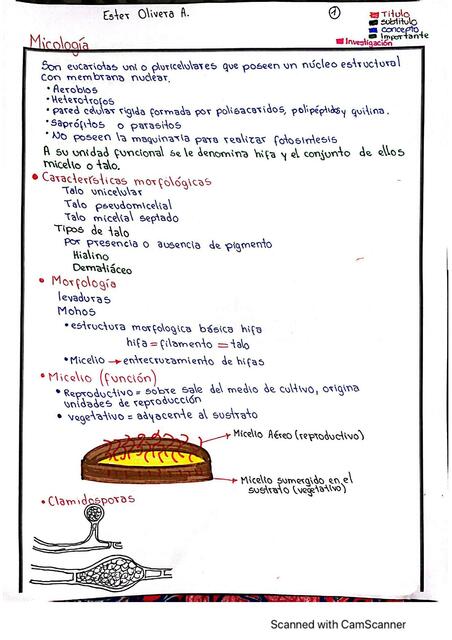 Ester Olivera A.
1
Titulo
subtitulo
concepto
Importante
Investigación
Micología
Son eucariotas uni o pluricelulares que poseen un núcleo estructural
con membrana nuclear.
• Aerobios
• Heterotrofos
• pared celular rigida formada por polisacaridos, polipéptidos y quitina.
• saprófitos o parasitos
• No poseen la maquinaria para realizar fotosintesis
A su unidad funcional se le denomina hifa y el conjunto de ellos
micelio o talo.
• Características morfológicas
Talo unicelular
Talo pseudomicelial
Talo micelial septado
Tipos de talo
por presencia o ausencia de pigmento
Hialino
Dematiáceo
• Morfología
levaduras
Mohos
• estructura morfologica básica hifa
hifa = filamento = talo
• Micelio → entrecruzamiento de hifas
• Micelio (función)
• Reproductivo = sobre sale del medio de cultivo, origina
unidades de reproducción
• vegetativo = adyacente al sustrato
Micelio Aéreo (reproductivo)
Micelio sumergido en el
sustrato (vegetativo)
• Clamidosporas
Scanned with CamScanner